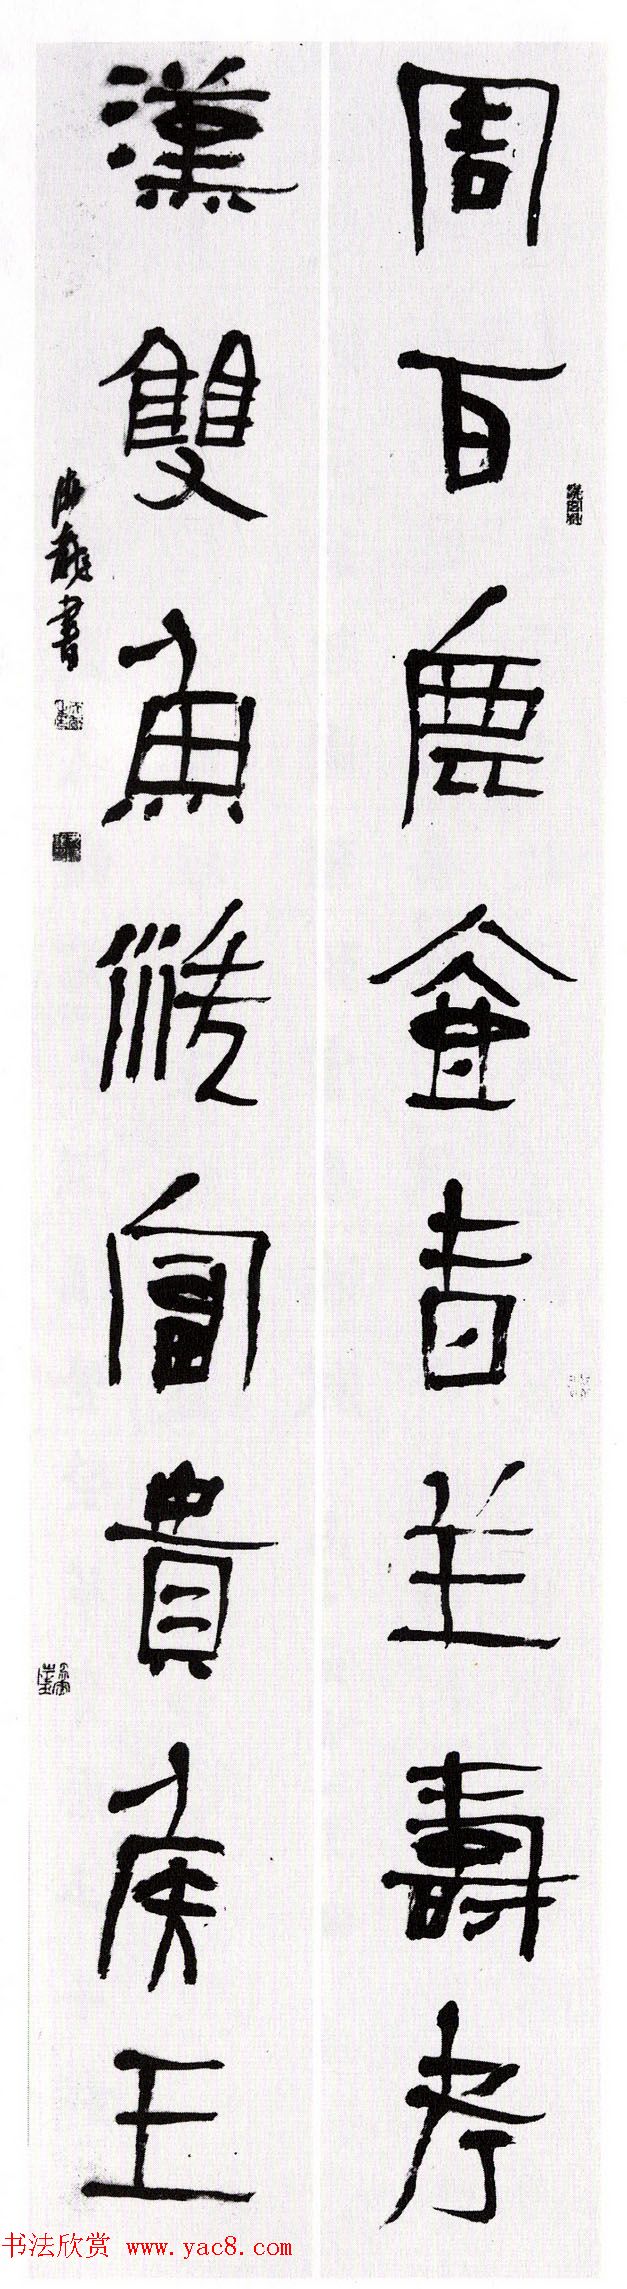 周百鹿盦吉羊壽考
漢雙魚洗富貴侯王
書
书法欣赏 www.yac8.com